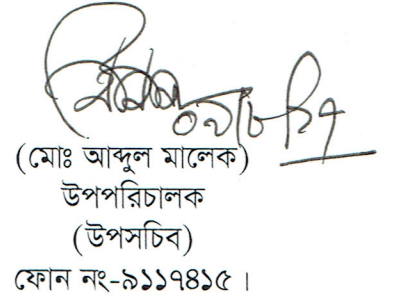 (মোঃ আব্দুল মালেক)
উপপরিচালক
(উপসচিব)
ফোন নং-৯১১৭৪১৫ ।